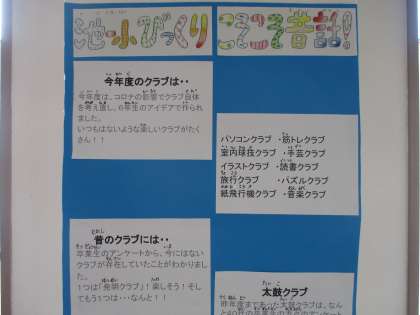 池小びっくり
こそこそ昔話!
今年度のクラブは・・
今年度は、コロナの影響でクラブ自体
を考え直し、6年生のアイデアで作られ
ました。
いつもはないような楽しいクラブがたく
さん！！
パソコンクラブ ・筋トレクラブ
室内球技クラブ ・手芸クラブ
イラストクラブ ・読書クラブ
旅行クラブ ・パズルクラブ
紙飛行機クラブ ・音楽クラブ
昔のクラブには・・
卒業生のアンケートから、今にはない
クラブが存在していたことがわかりまし
た。
1つは「発明クラブ」！楽しそう！そし
てもう1つは・・なんと！！
太鼓クラブ
昨年度まであった太鼓クラブは、なん